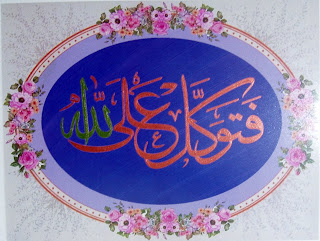 فَتَوَكَّلْ عَلَى اللهِ